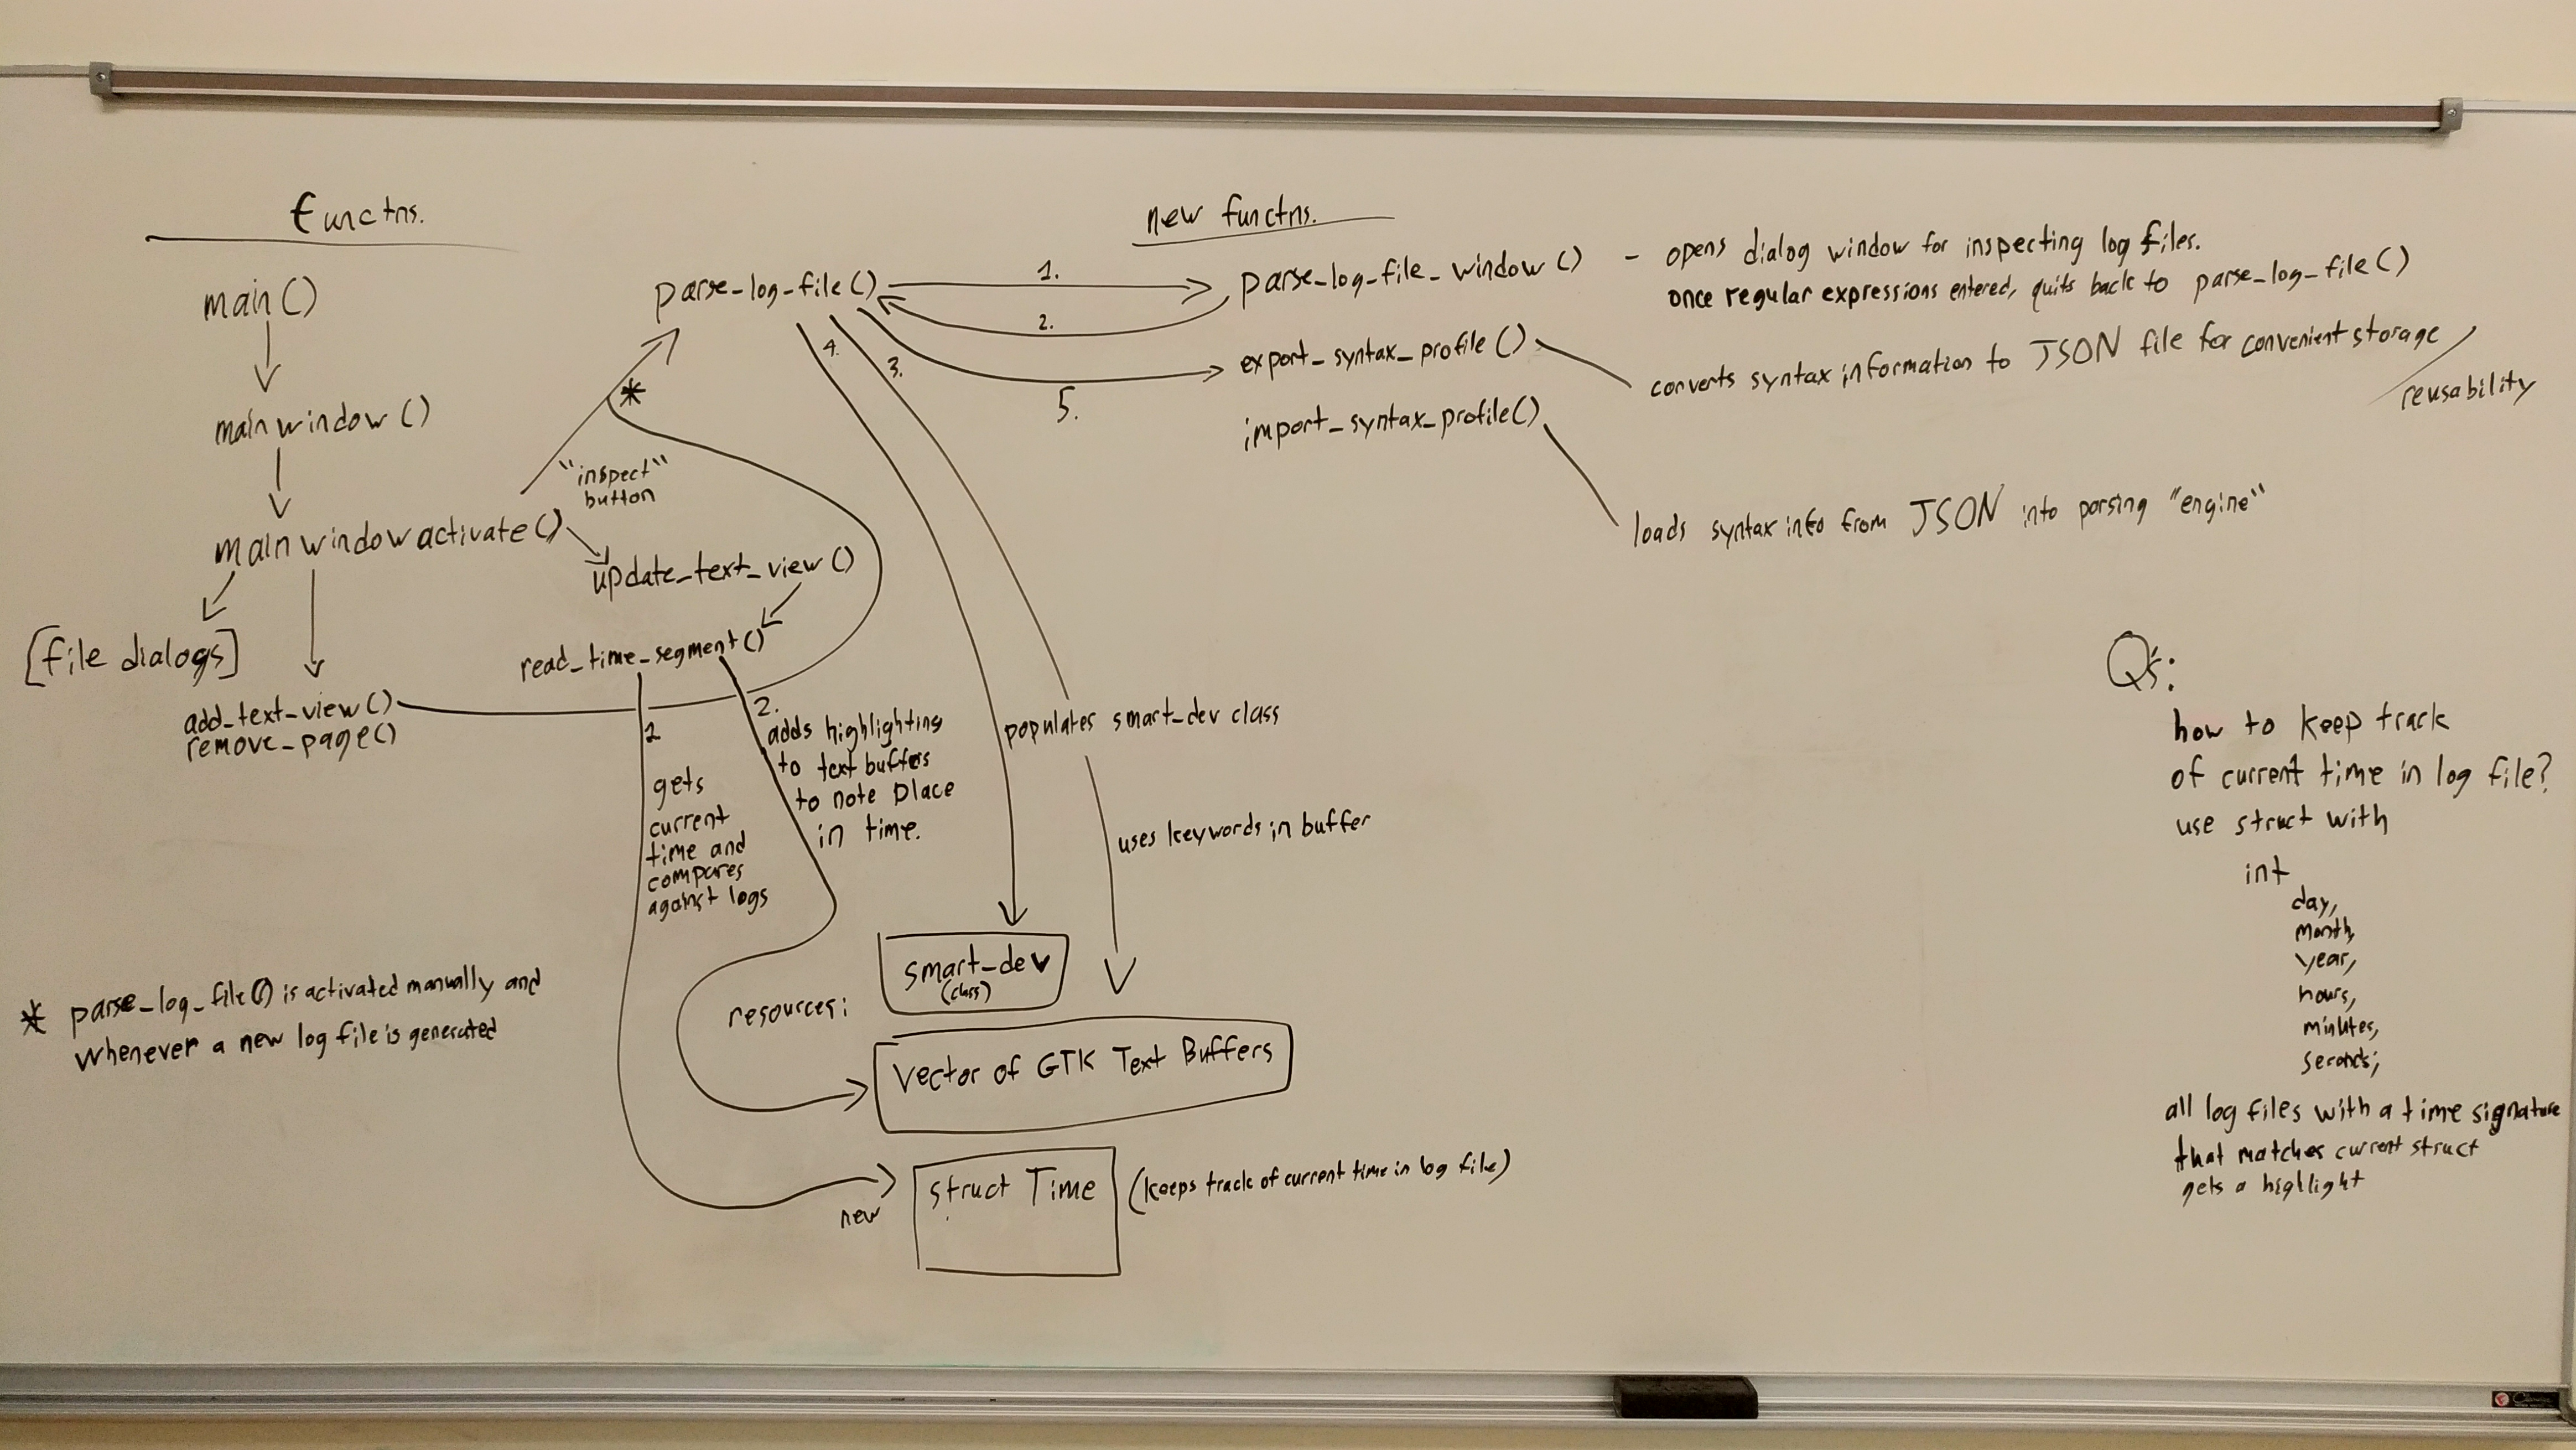 functns.
main()
mainwindow()
mainwindowactivate()
[file dialogs]
add_text_view()
remove_page()
"inspect"
button
*
update_text_view()
read_time_segment()
1
gets
current
time and
compares
against logs
2.
adds highlighting
to text buffers
to note place
in time.
* parse_log_file() is activated manually and
whenever a new log file is generated
parse_log_file()
1.
2.
3.
4.
5.
new functns.
parse_log_file_window() - opens dialog window for inspecting log files.
once regular expressions entered, quits back to parse_log_file()
export_syntax_profile()
converts syntax information to JSON file for convenient storage /
reusability
import_syntax_profile()
loads syntax info from JSON into parsing "engine"
populates smart_dev class
uses keywords in buffer
resources:
smart_dev
(class)
Vector of GTK Text Buffers
new
struct Time
(keeps track of current time in log file)
Q's:
how to keep track
of current time in log file?
use struct with
int
day,
month,
year,
hours,
minutes,
seconds;
all log files with a time signature
that matches current struct
gets a highlight